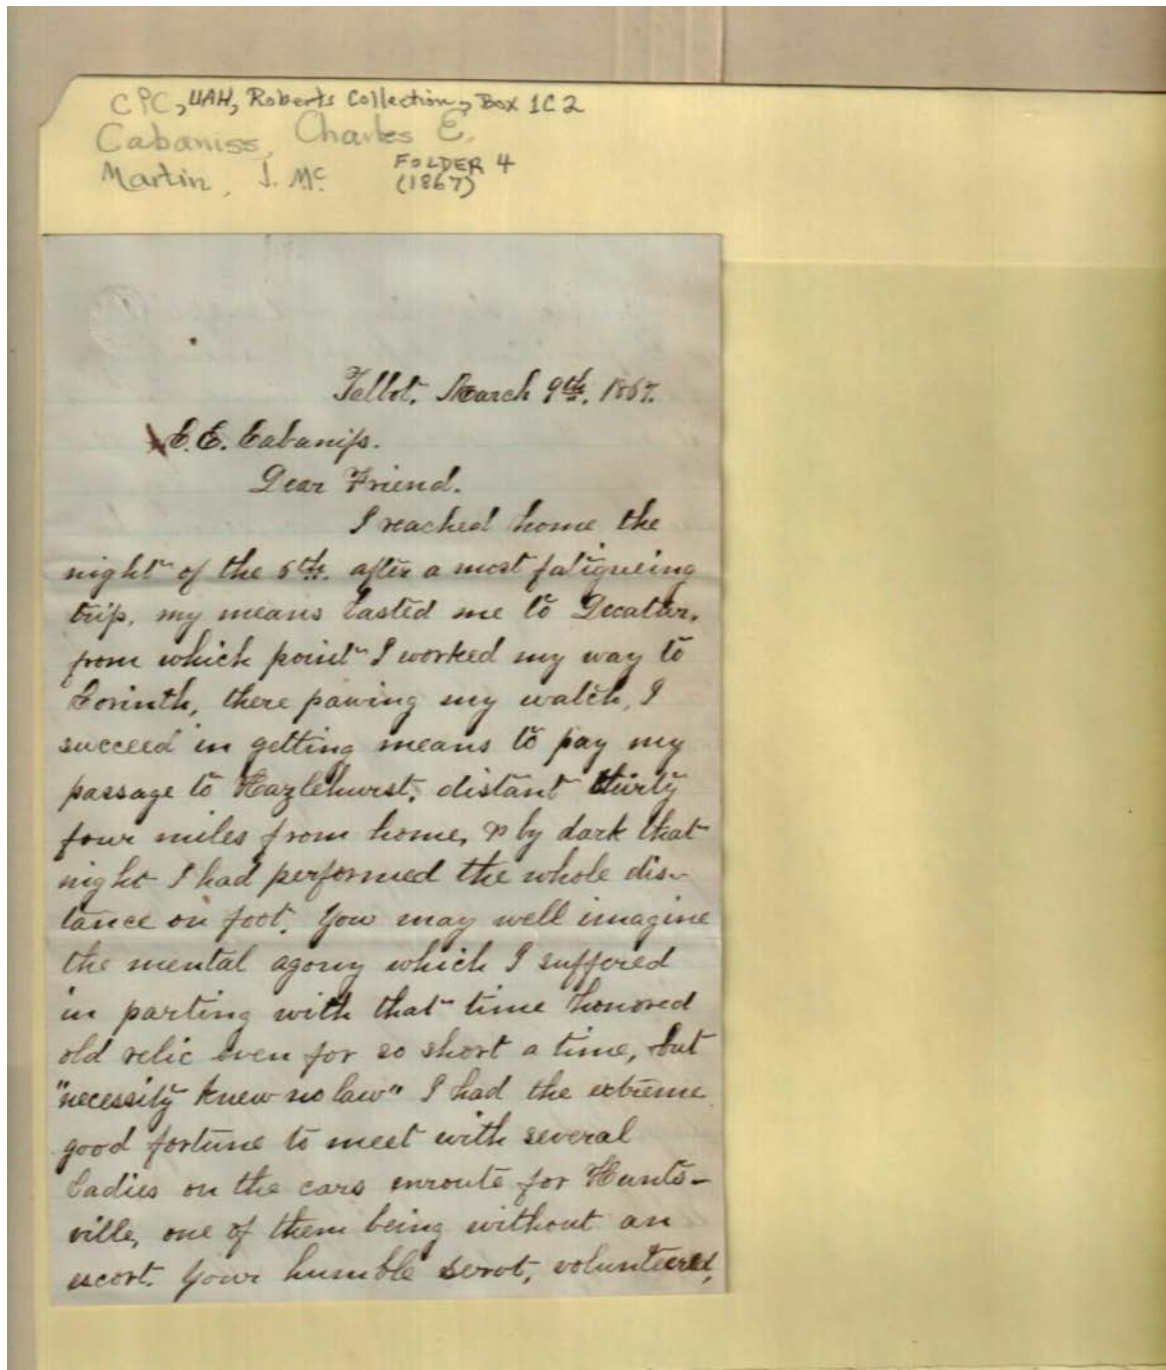 CPC, UAH, Roberts Collection, Box 1C2
Cabaniss, Charles E.
Martin, J. Mc.
FOLDER 4
(1867)
Talbot. March 9th. 1867.
C. E. Cabaniss.
Dear Friend.
I reached home the
night of the 5th. after a most fatigueing
trip. my means lasted me to Decatur.
from which point I worked my way to
Corinth, there pawing my watch, I
succeed in getting means to pay my
passage to Hazlehurst, distant thirty
four miles from home, & by dark that
night I had performed the whole dis-
tance on foot. You may well imagine
the mental agony which I suffered
in parting with that time honored
old relic even for so short a time, but
"necessity knew no law" I had the extreme
good fortune to meet with several
Ladies on the cars enroute for Hunts-
ville, one of them being without an
escort. Your humble servt, volunteered,